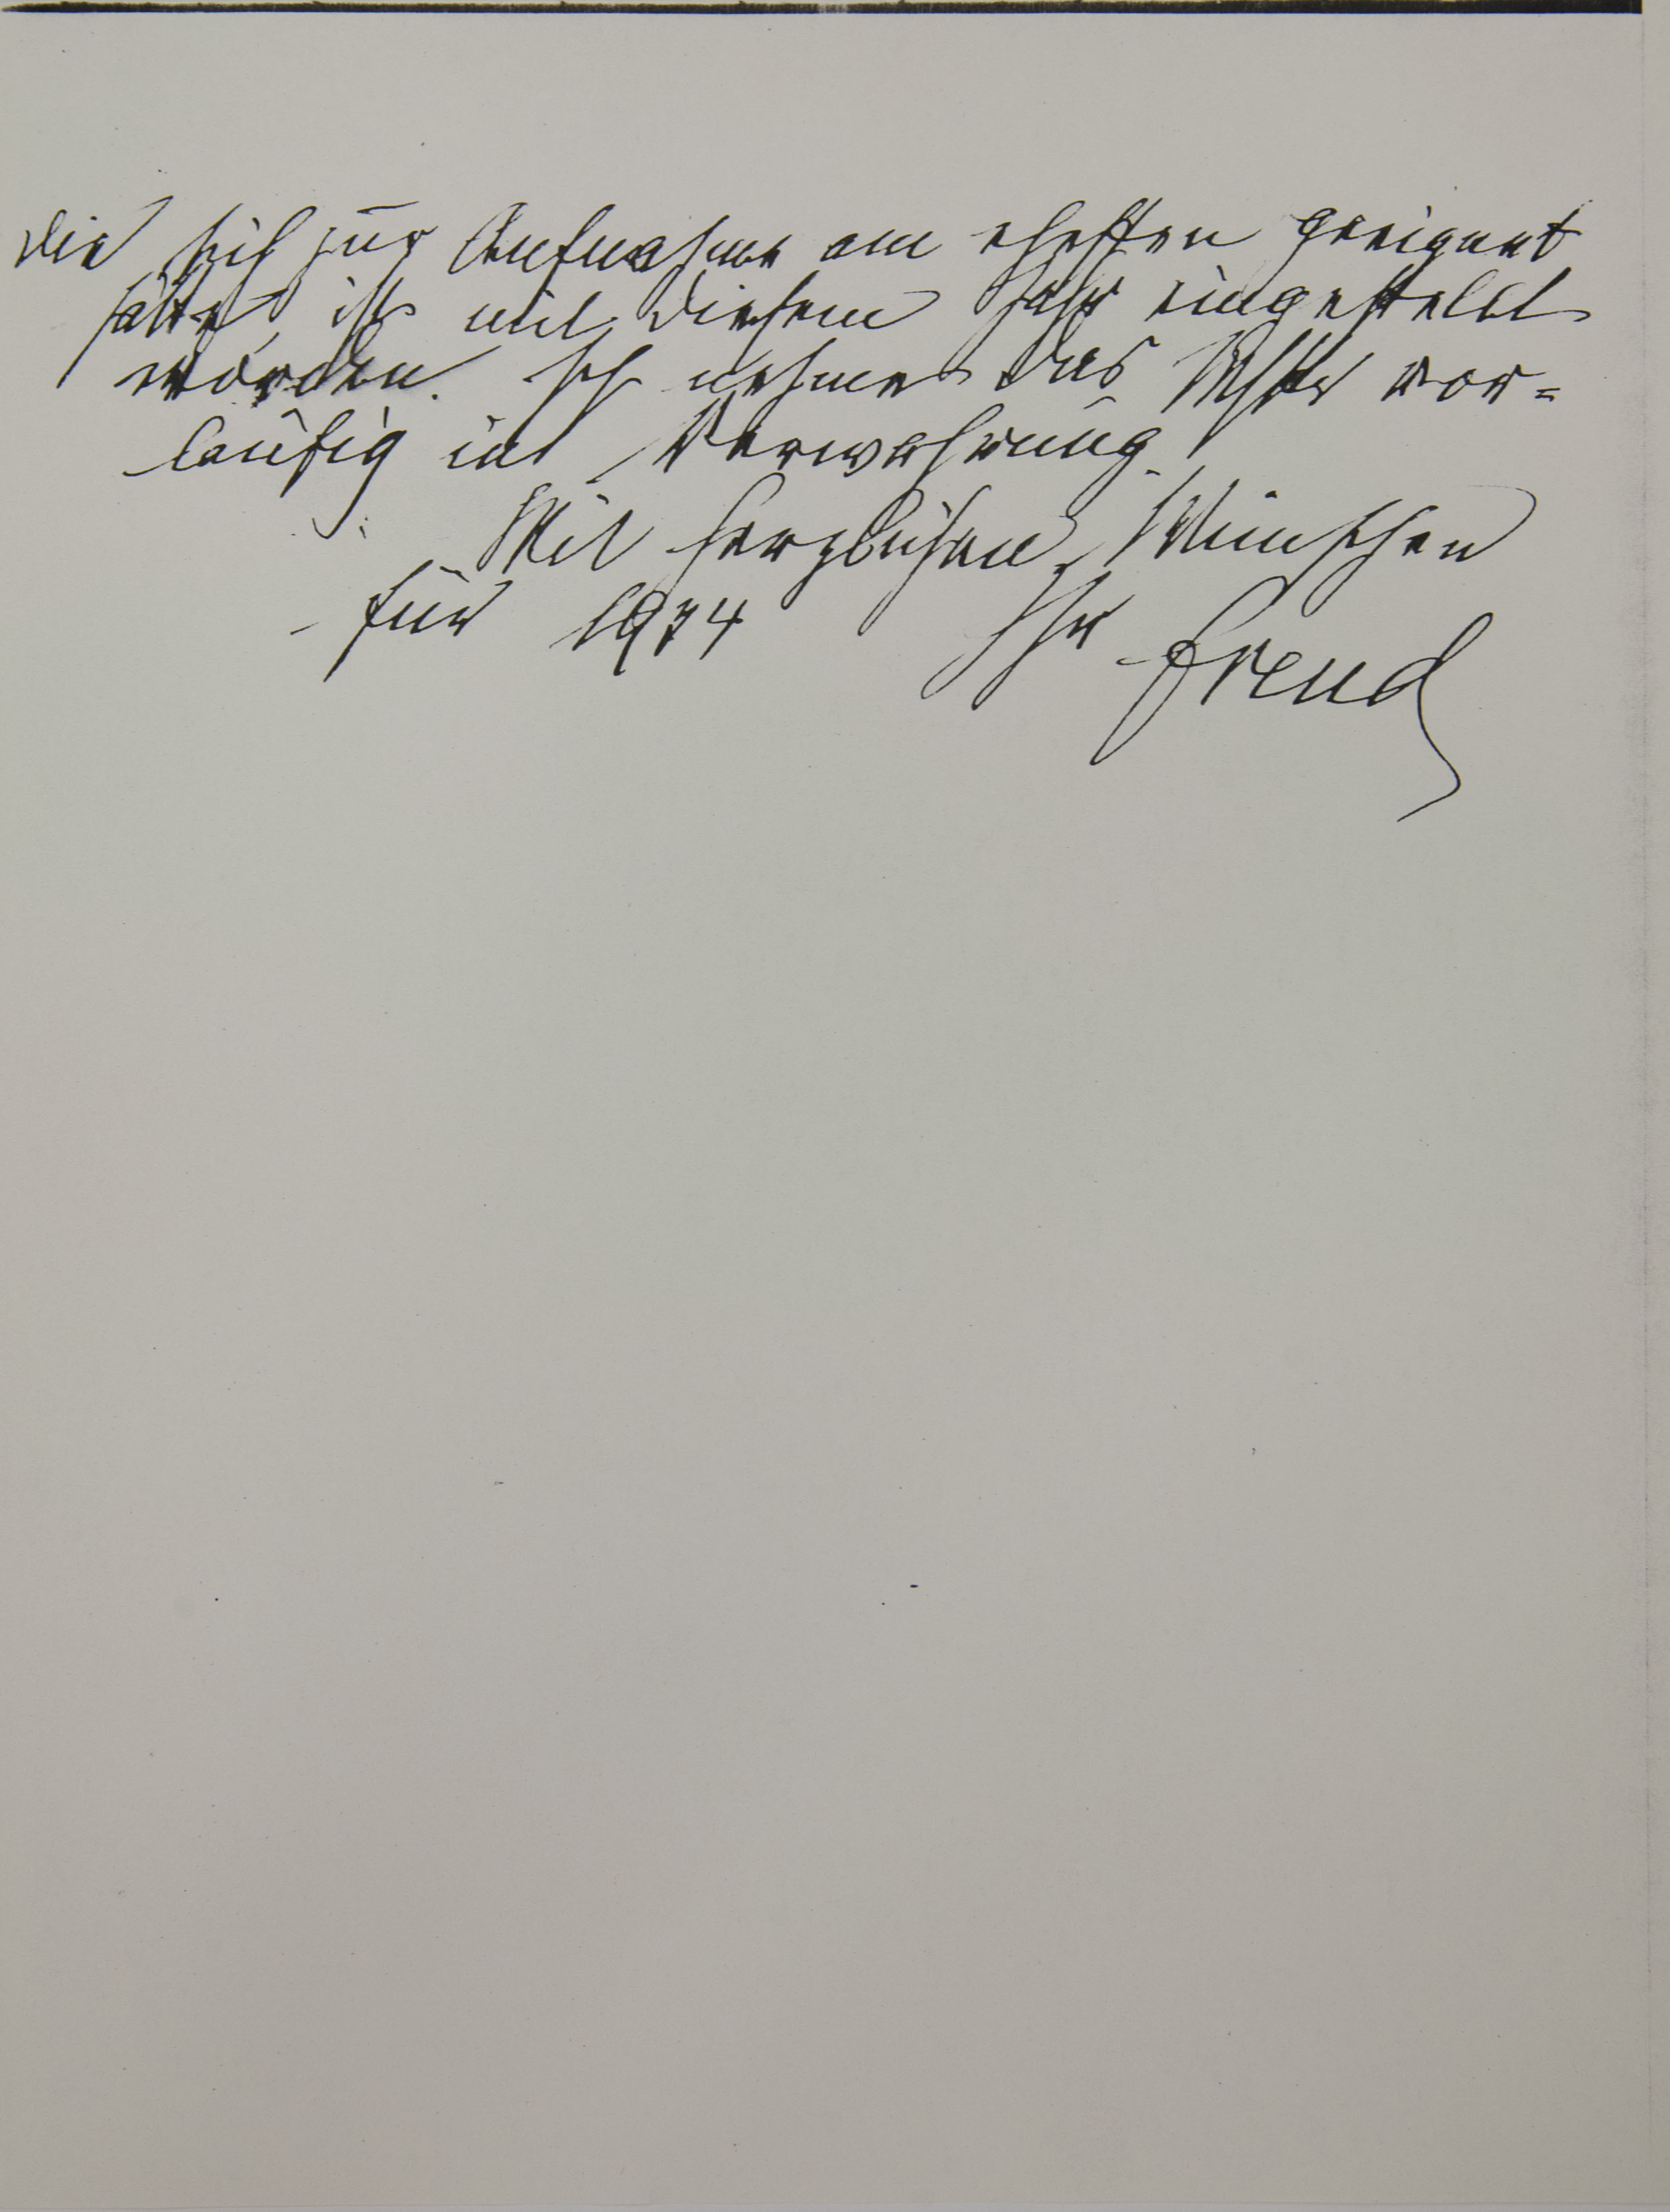 die sich zur Aufnahme am ehesten geeignet
hätte, ist mit diesem Jahr eingestellt
worden. Ich nehme das Mskr vor=
läufig in Verwahrung.
Mit herzlichen Wünschen
für 1934 Ihr Freud